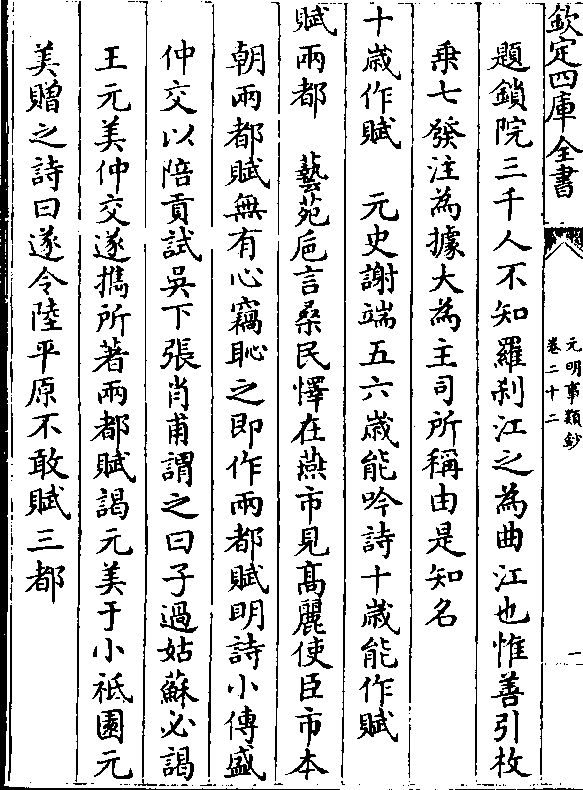 欽定四庫全書
元明事類鈔
卷二十二
一
題鎖院三千人不知羅刹江之為曲江也惟善引枚
乗七發注為據大為主司所稱由是知名
十歳作賦　元史謝端五六歳能吟詩十歳能作賦
賦兩都　藝苑巵言桑民懌在燕市見髙麗使臣市本
朝兩都賦無有心竊恥之即作兩都賦明詩小傳盛
仲交以陪貢試吳下張肖甫謂之曰子過姑蘇必謁
王元美仲交遂攜所著兩都賦謁元美于小祗園元
美贈之詩曰遂令陸平原不敢賦三都